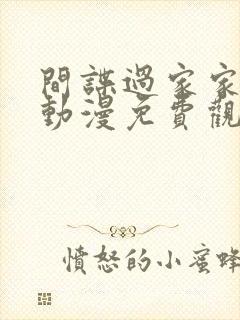 間諜過家家
動漫免費觀
憤怒的小蜜蜂